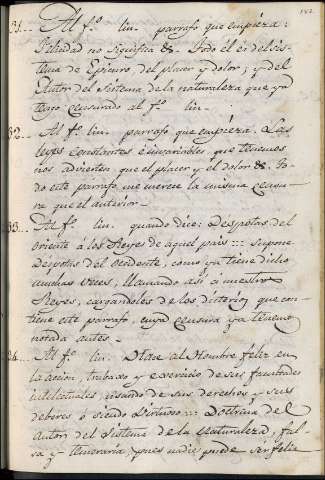 31... Al f.º lin. parrafo que empieza:
Felicidad no significa &c. Todo él es del sis-
tema de Epicuro, del placer y dolor; y del
Autor del Sistema de la naturaleza que ya
tengo censurado al f.º lin.
32... Al f.º lin. parrafo que empieza: Las
leyes constantes é invariables que tenemos
nos advierten que el placer y el dolor &c. To-
do este parrafo me merece la misma censu-
ra que el anterior.
33... Al f.º lin. quando dice: Despotas del
oriente á los Reyes de aquel pais ::: supone
Déspotas del occidente, como ya tiene dicho
muchas veces, llamando asi á nuestros
Reyes, cargandoles de los dicterios que con-
tiene este parrafo, cuya censura ya tenemos
notada antes.
34... Al f.º lin. Hace al Hombre feliz en
la accion, trabaxo y exercicio de sus facultades
intelectuales, usando de sus derechos y sus
deberes ó siendo virtuoso ::: Doctrina del
Autor del Sistema de la Naturaleza, fal-
sa y temeraria, pues nadie puede ser feliz